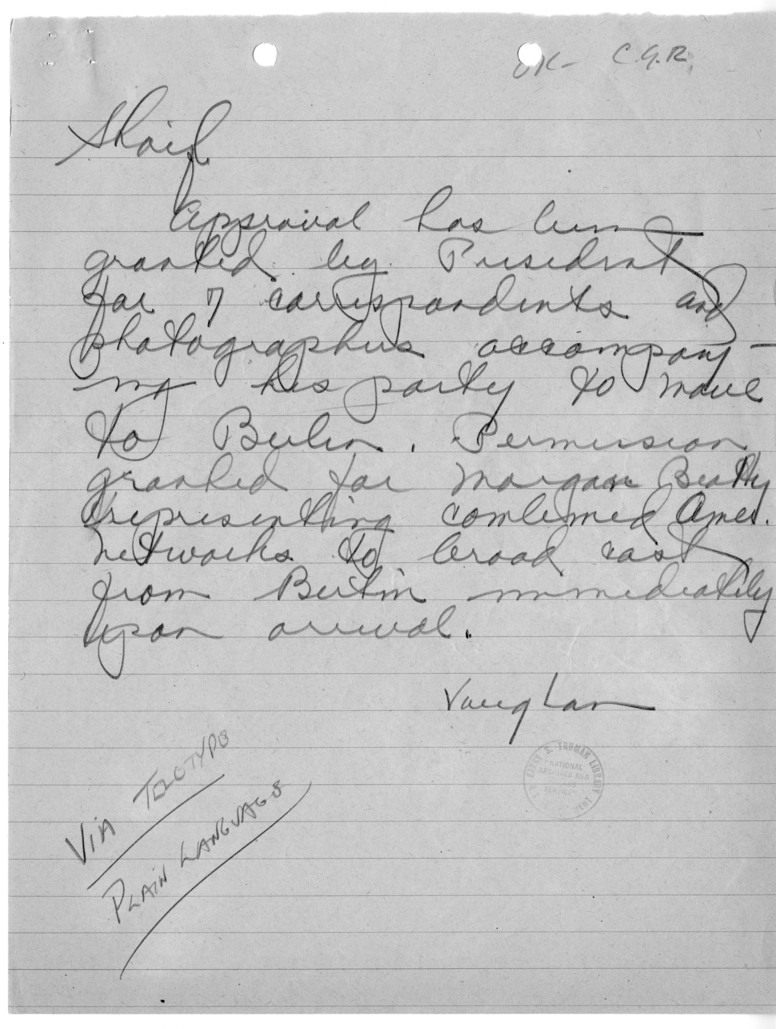 OK- C.G.R.
Shaef
Approval has been
granted by President
for 7 correspondents and
photographers accompany-
ing his party to move
to Berlin. Permission
granted for Morgan Beatty
representing combined Amer.
networks to broad cast
from Berlin immediately
upon arrival.
Vaughan
VIA TELOTYPE
PLAIN LANGUAGE
HARRY S. TRUMAN LIBRARY
NATIONAL
ARCHIVES AND